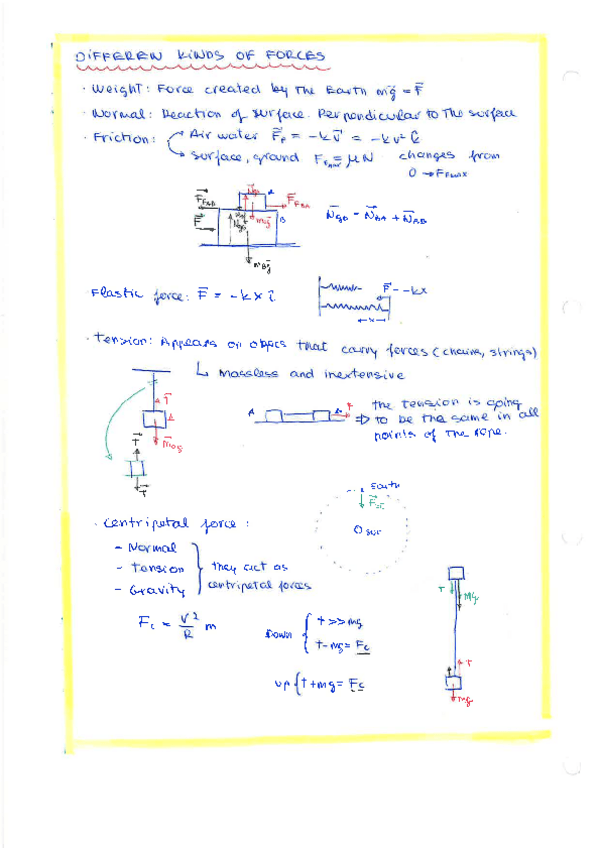 DIFFEREN KINDS OF FORCES
· Weight: Force created by The Earth mg⃗ = F⃗
· Normal: Reaction of surface. Perpendicular to The surface
· Friction: Air water F⃗F = -kv⃗ = -kv² û
surface, ground FFmax = μN changes from
0 → FFmax
F⃗FAB A F⃗FBA
F⃗ B mAg⃗
N⃗GB = N⃗BA + N⃗AB
mBg⃗
Elastic force: F⃗ = -kx î
F⃗ = -kx
x
· Tension: Appears on objects that carry forces (chains, strings)
↳ Massless and inextensive
T⃗
A
mAg⃗
T⃗
T⃗
A B T
⇒ the tension is going
to be the same in all
points of the rope.
Earth
sun
· Centripetal force:
- Normal
- Tension
- Gravity
they act as
centripetal forces
Fc = v²/R m
Down { T >> mg
T - mg = Fc
up { T + mg = Fc
T Mg
T
mg